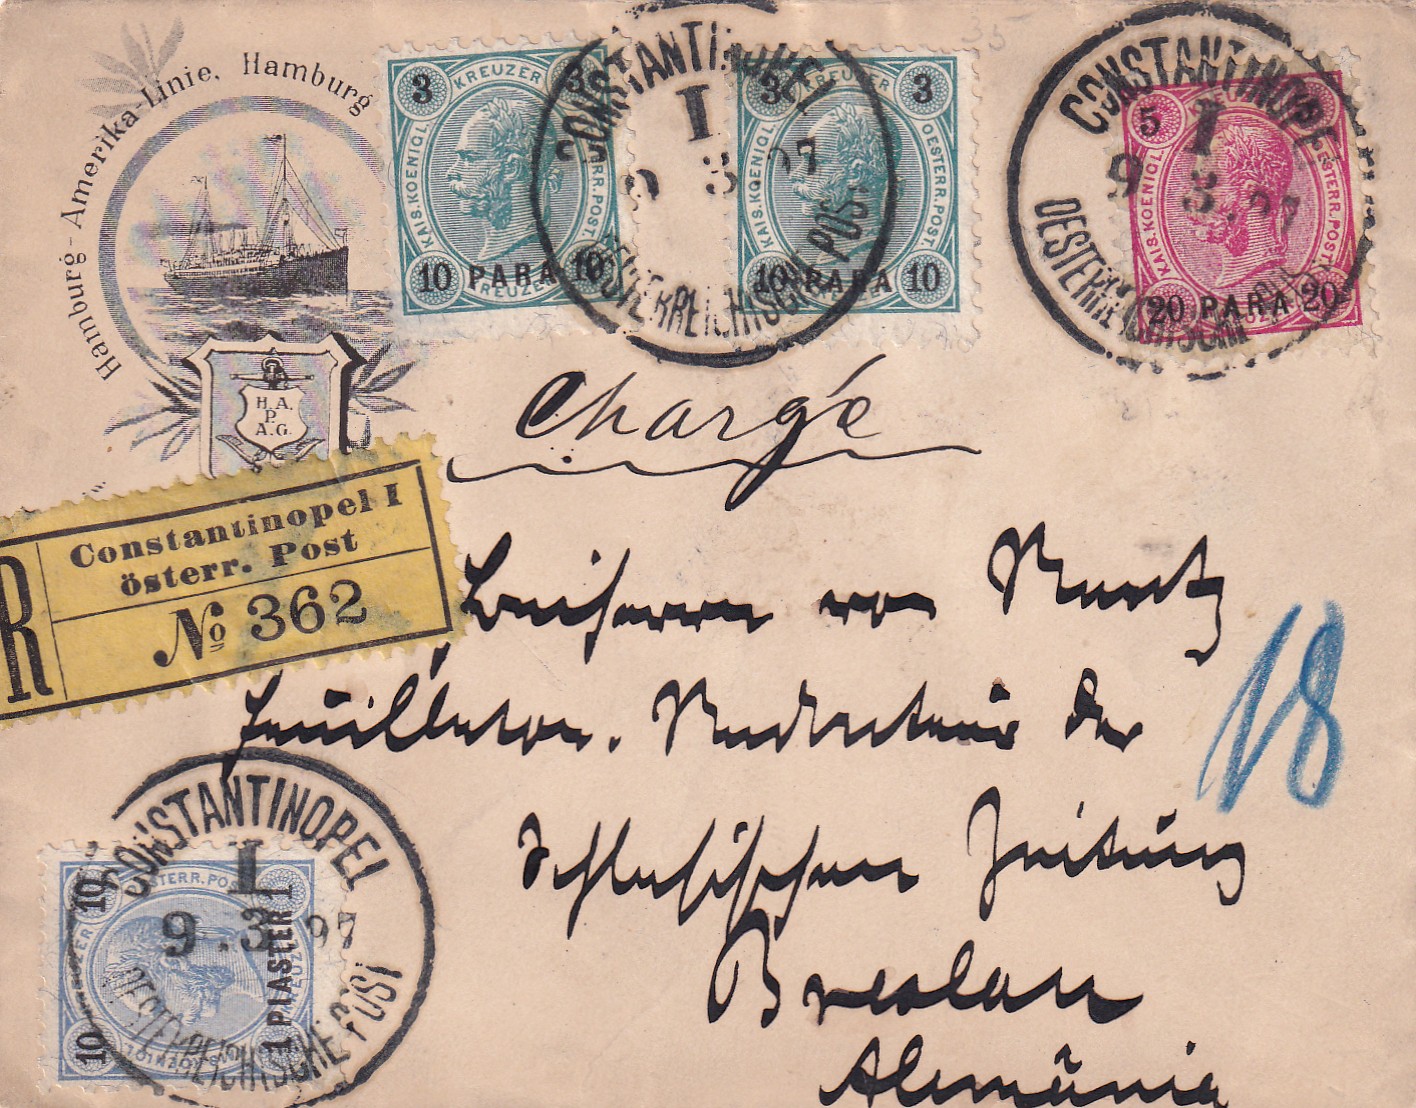 35
Hamburg-Amerika-Linie, Hamburg
H. A.
P.
A.G.
3 KREUZER 3
KAIS. KOENIGL. OESTERR. POST.
10 PARA 10
KREUZER
3 KREUZER 3
KAIS. KOENIGL. OESTERR. POST.
10 PARA 10
CONSTANTINOPEL
I
9 3 97
OESTERREICHISCHE POST
5
KAIS. KOENIGL. OESTERR. POST.
20 PARA 20
CONSTANTINOPEL
I
9 3.97
OESTERREICHISCHE
Chargé
R
Constantinopel I
österr. Post
No 362
von
Feuilleton. Redakteur der
Schlesischen Zeitung
Breslau
Alemánia
18
CONSTANTINOPEL
I
9.3 97
OESTERREICHISCHE POST
10 10
OESTERR. POST
1 PIASTER 1